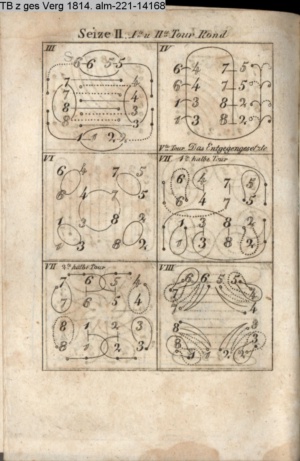 TB z ges Verg 1814. alm-221-14168
Seize II. 1te u IIte Tour Rond
III
IV
5 6 6 5 5
7 4
7 4
8 3
8 3
1 1 2 2
6 4 7 5
6 4 7 5
1 3 8 2
1 3 8 2
Vte Tour. Das Entgegengesetzte
VI
VII 1te halbe Tour
6 4 7 5
6 4 7 5
1 3 8 2
1 3 8 2
6 4 7 5
6 4 7 5
1 3 8 2
1 3 8 2
VII 2te halbe Tour
VIII
7 6 5 4
7 6 5 4
8 1 2 3
8 1 2 3
6 6 5 5
7 4
7 4
8 3
8 3
1 1 2 2